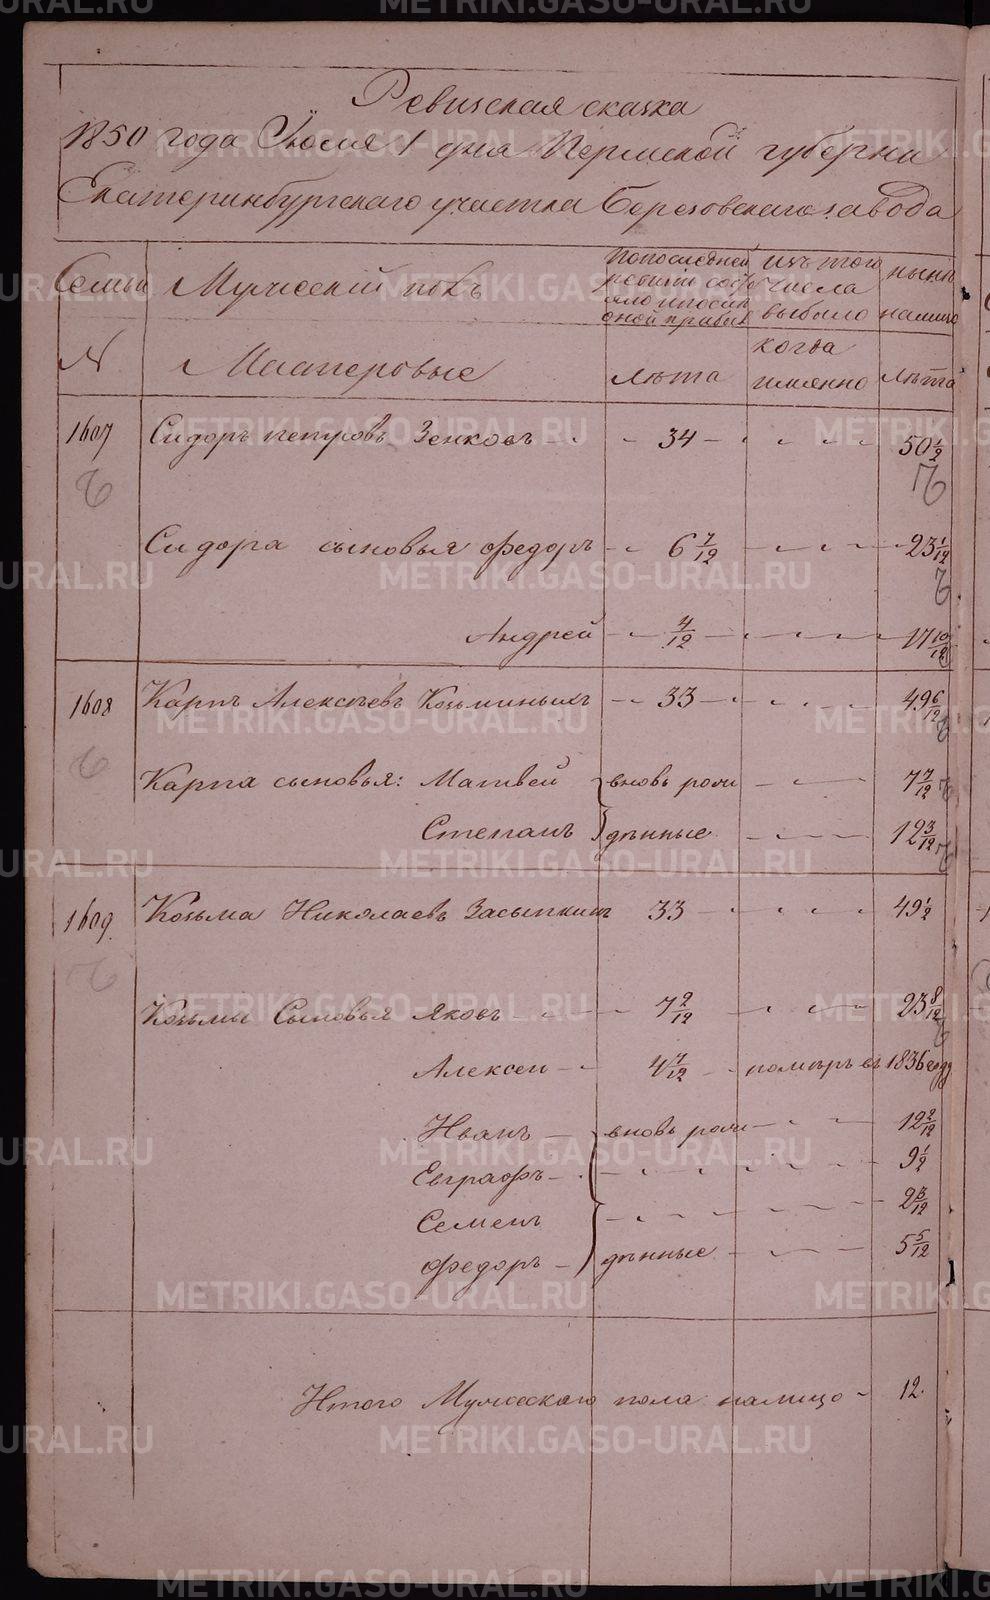 Ревизская сказка
1850 года Июля 1 дня Пермской губернии
Екатеринбургского участка Березовского завода
Семьи
Мужеский полъ
По последней ревизіи состояло и после оной прибыло
изъ того числа выбыло
нынѣ налицо
№
Мастеровые
лѣта
когда именно
лѣта
1607 Сидоръ петровъ Зенковъ 34 50 1/2
Сидора сыновья федоръ 6 7/12 23 1/12
Андрей 4/12 17 10/12
1608 Карпъ Алексѣевъ Козьминыхъ 33 49 6/12
Карпа сыновья: Матвей вновь рож 7 7/12
Степанъ дѣнные 12 3/12
1609. Козьма Николаевъ Засыпкинъ 33 49 1/2
Козьмы Сыновья Яковъ 7 2/12 23 8/12
Алексей 4 7/12 помѣръ въ 1836 году
Иванъ вновь рож 12 2/12
Евграфъ 9 1/2
Семенъ 2 3/12
федоръ дѣнные 5 5/12
Итого Мужескаго пола налицо 12.
METRIKI.GASO-URAL.RU